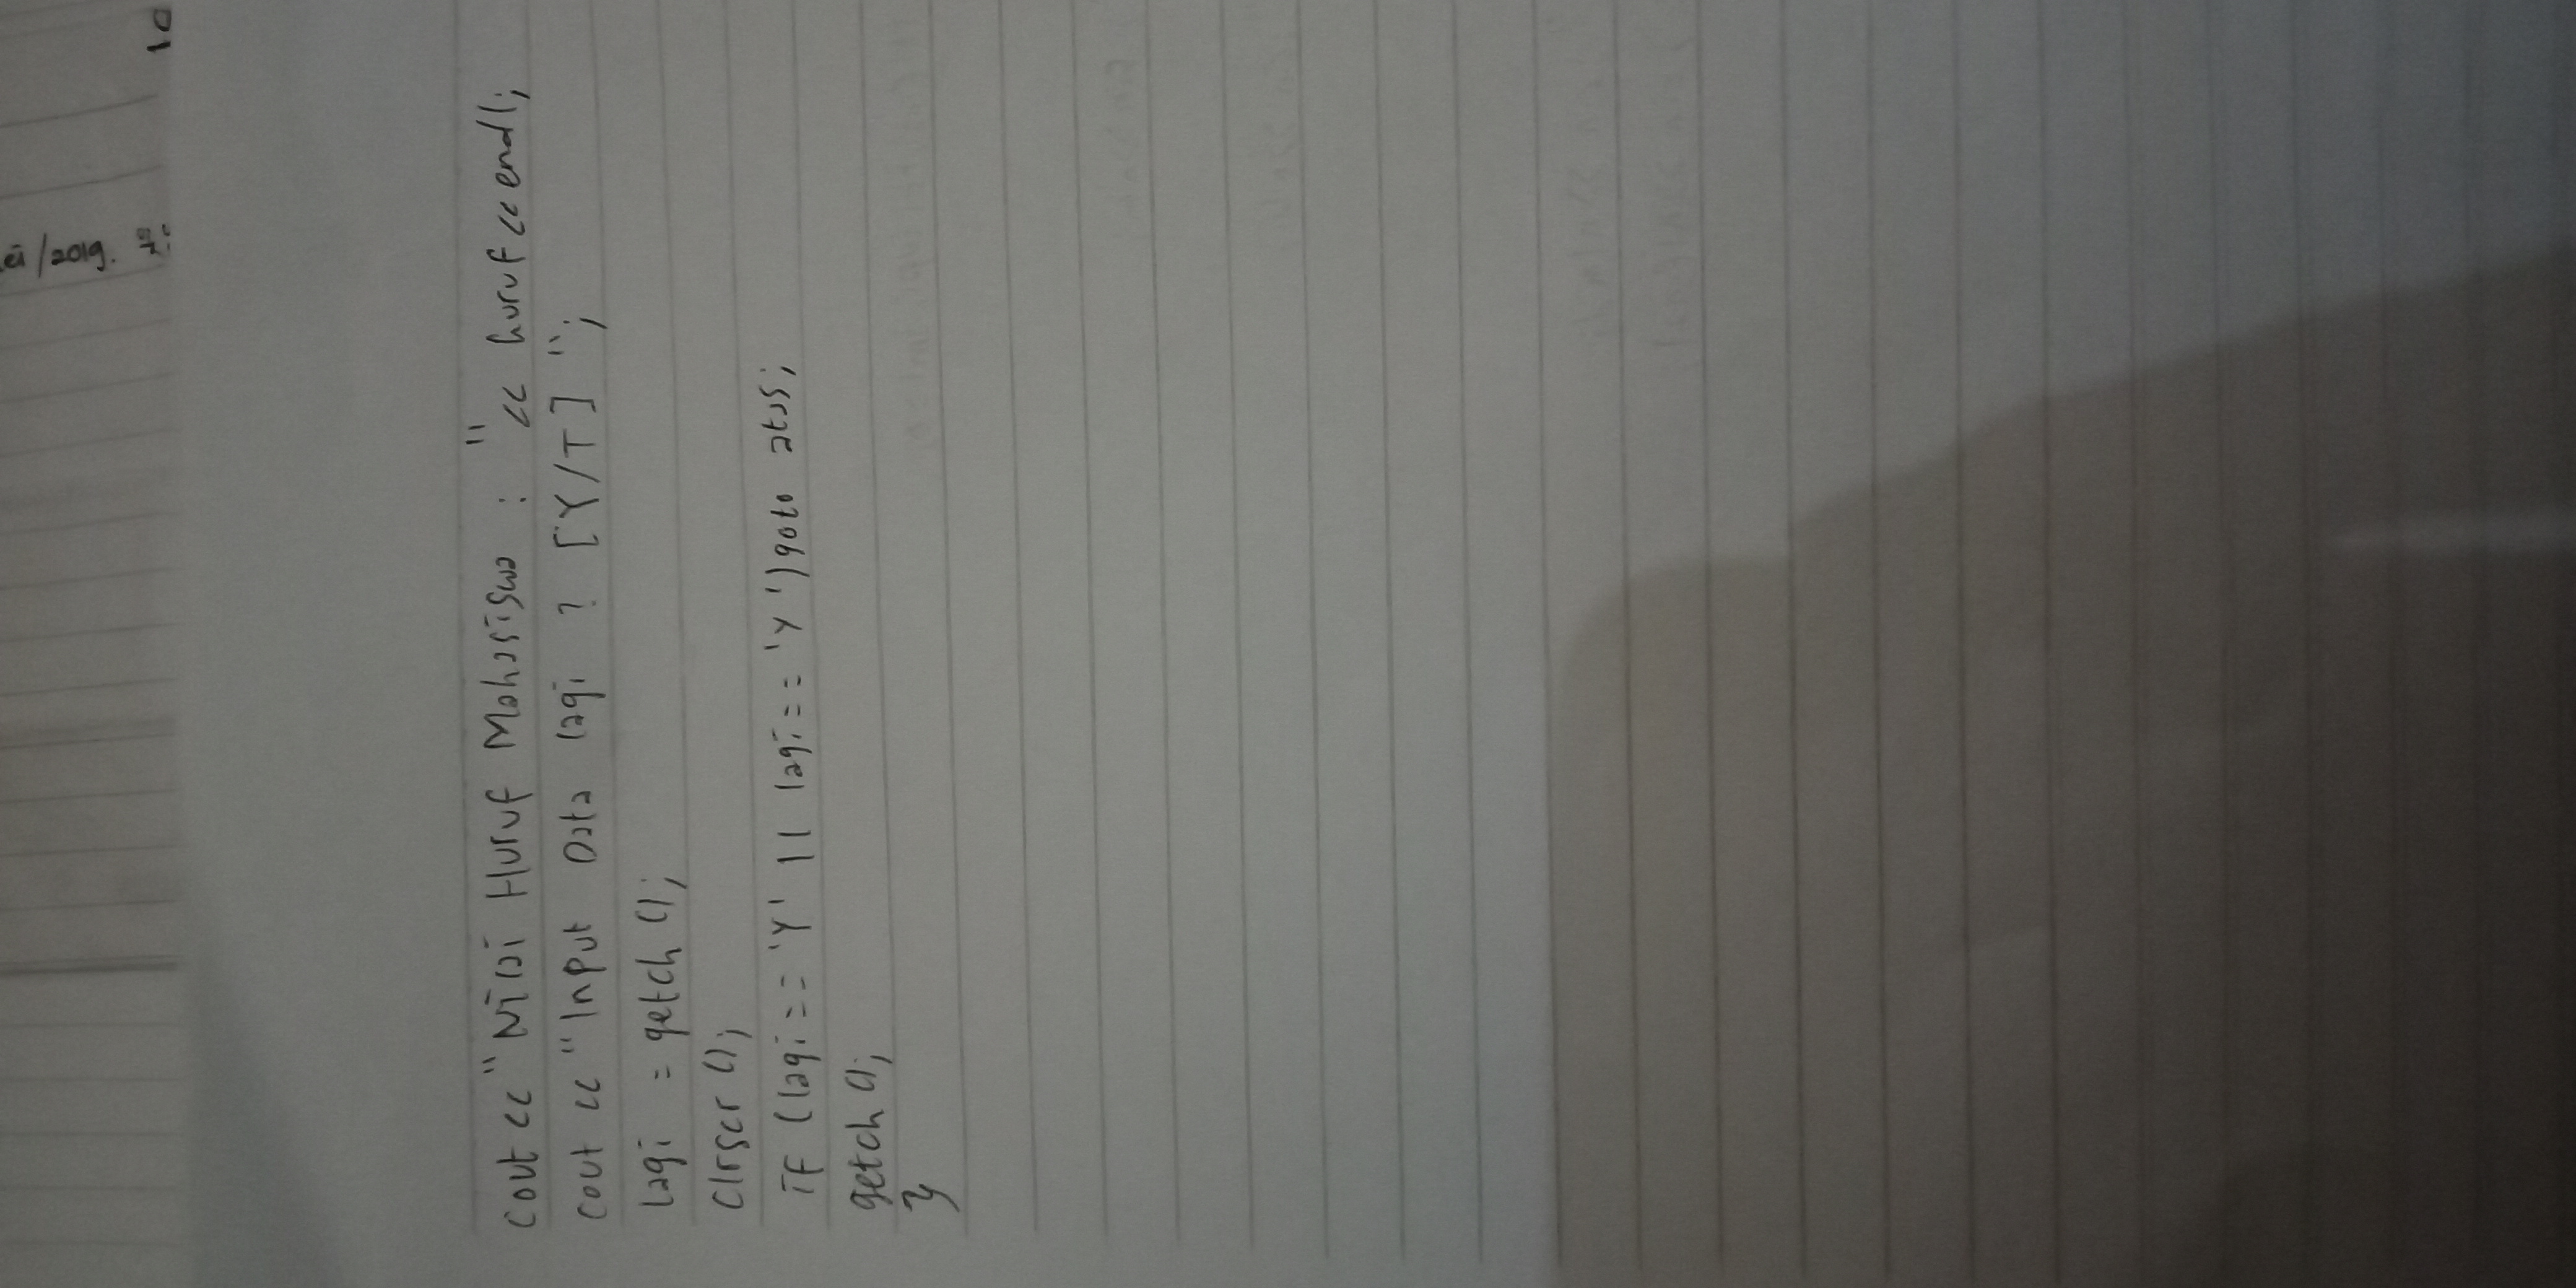 cout << "Nilai Huruf Mahasiswa : " << huruf << endl;
cout << "Input Data lagi ? [Y/T] ";
lagi = getch ();
Clrscr ();
if (lagi == 'Y' || lagi == 'y') goto atas;
getch ();
}
/2019.
10